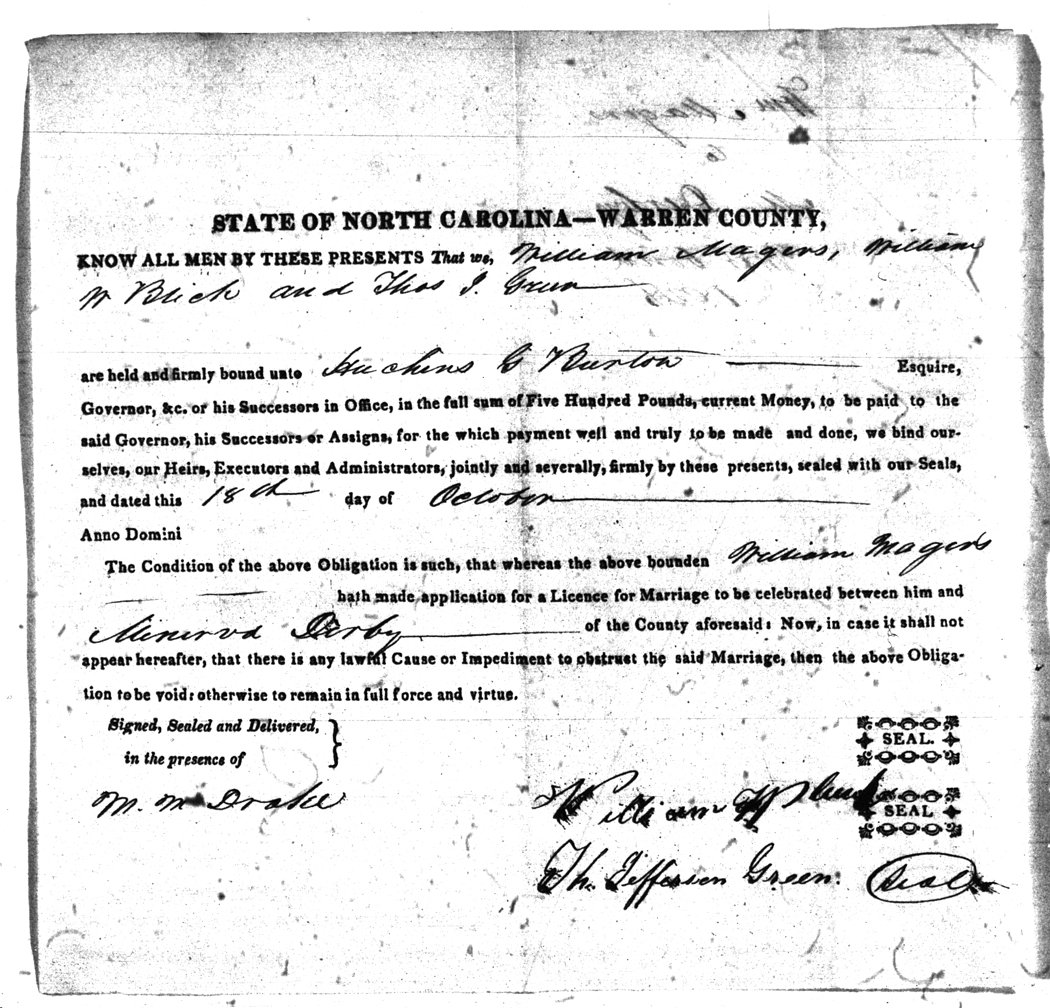 STATE OF NORTH CAROLINA—WARREN COUNTY,
KNOW ALL MEN BY THESE PRESENTS That we, William Magers, William
W Blick and Thos J. Green
are held and firmly bound unto Huchens G Burton Esquire,
Governor, &c. or his Successors in Office, in the full sum of Five Hundred Pounds, current Money, to be paid to the
said Governor, his Successors or Assigns, for the which payment well and truly to be made and done, we bind our-
selves, our Heirs, Executors and Administrators, jointly and severally, firmly by these presents, sealed with our Seals,
and dated this 18th day of October
Anno Domini
The Condition of the above Obligation is such, that whereas the above bounden William Magers
hath made application for a Licence for Marriage to be celebrated between him and
Minerva Darby of the County aforesaid: Now, in case it shall not
appear hereafter, that there is any lawful Cause or Impediment to obstruct the said Marriage, then the above Obliga-
tion to be void: otherwise to remain in full force and virtue.
Signed, Sealed and Delivered,
in the presence of
SEAL.
M. M Drake
William W
SEAL
Th. Jefferson Green. Seal